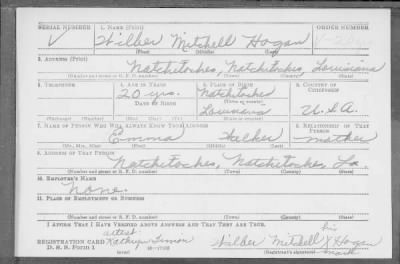 SERIAL NUMBER 1. NAME (Print) ORDER NUMBER
V Wilber Mitchell Hogan
(First) (Middle) (Last)
2. ADDRESS (Print)
Natchitoches, Natchitoches, Louisiana
(Number and street or R. F. D. number) (Town) (County) (State)
3. TELEPHONE 4. AGE IN YEARS 5. PLACE OF BIRTH 6. COUNTRY OF CITIZENSHIP
20 yrs. Natchitoches
DATE OF BIRTH (Town or county)
Louisiana U.S.A.
(Exchange) (Number) (Mo.) (Day) (Yr.) (State or country)
7. NAME OF PERSON WHO WILL ALWAYS KNOW YOUR ADDRESS 8. RELATIONSHIP OF THAT PERSON
Emma mother
(Mr., Mrs., Miss) (First) (Middle) (Last)
9. ADDRESS OF THAT PERSON
Natchitoches, Natchitoches, La.
(Number and street or R. F. D. number) (Town) (County) (State)
10. EMPLOYER'S NAME
None
11. PLACE OF EMPLOYMENT OR BUSINESS
(Number and street or R. F. D. number) (Town) (County) (State)
I AFFIRM THAT I HAVE VERIFIED ABOVE ANSWERS AND THAT THEY ARE TRUE.
attest: his
REGISTRATION CARD Kathryn Wilber Mitchell X Hogan
D. S. S. Form 1 (Registrant's signature) mark